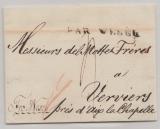 PAR WESEL
Messieurs de Mottet Frères
à
Verviers
près d'Aix la Chapelle